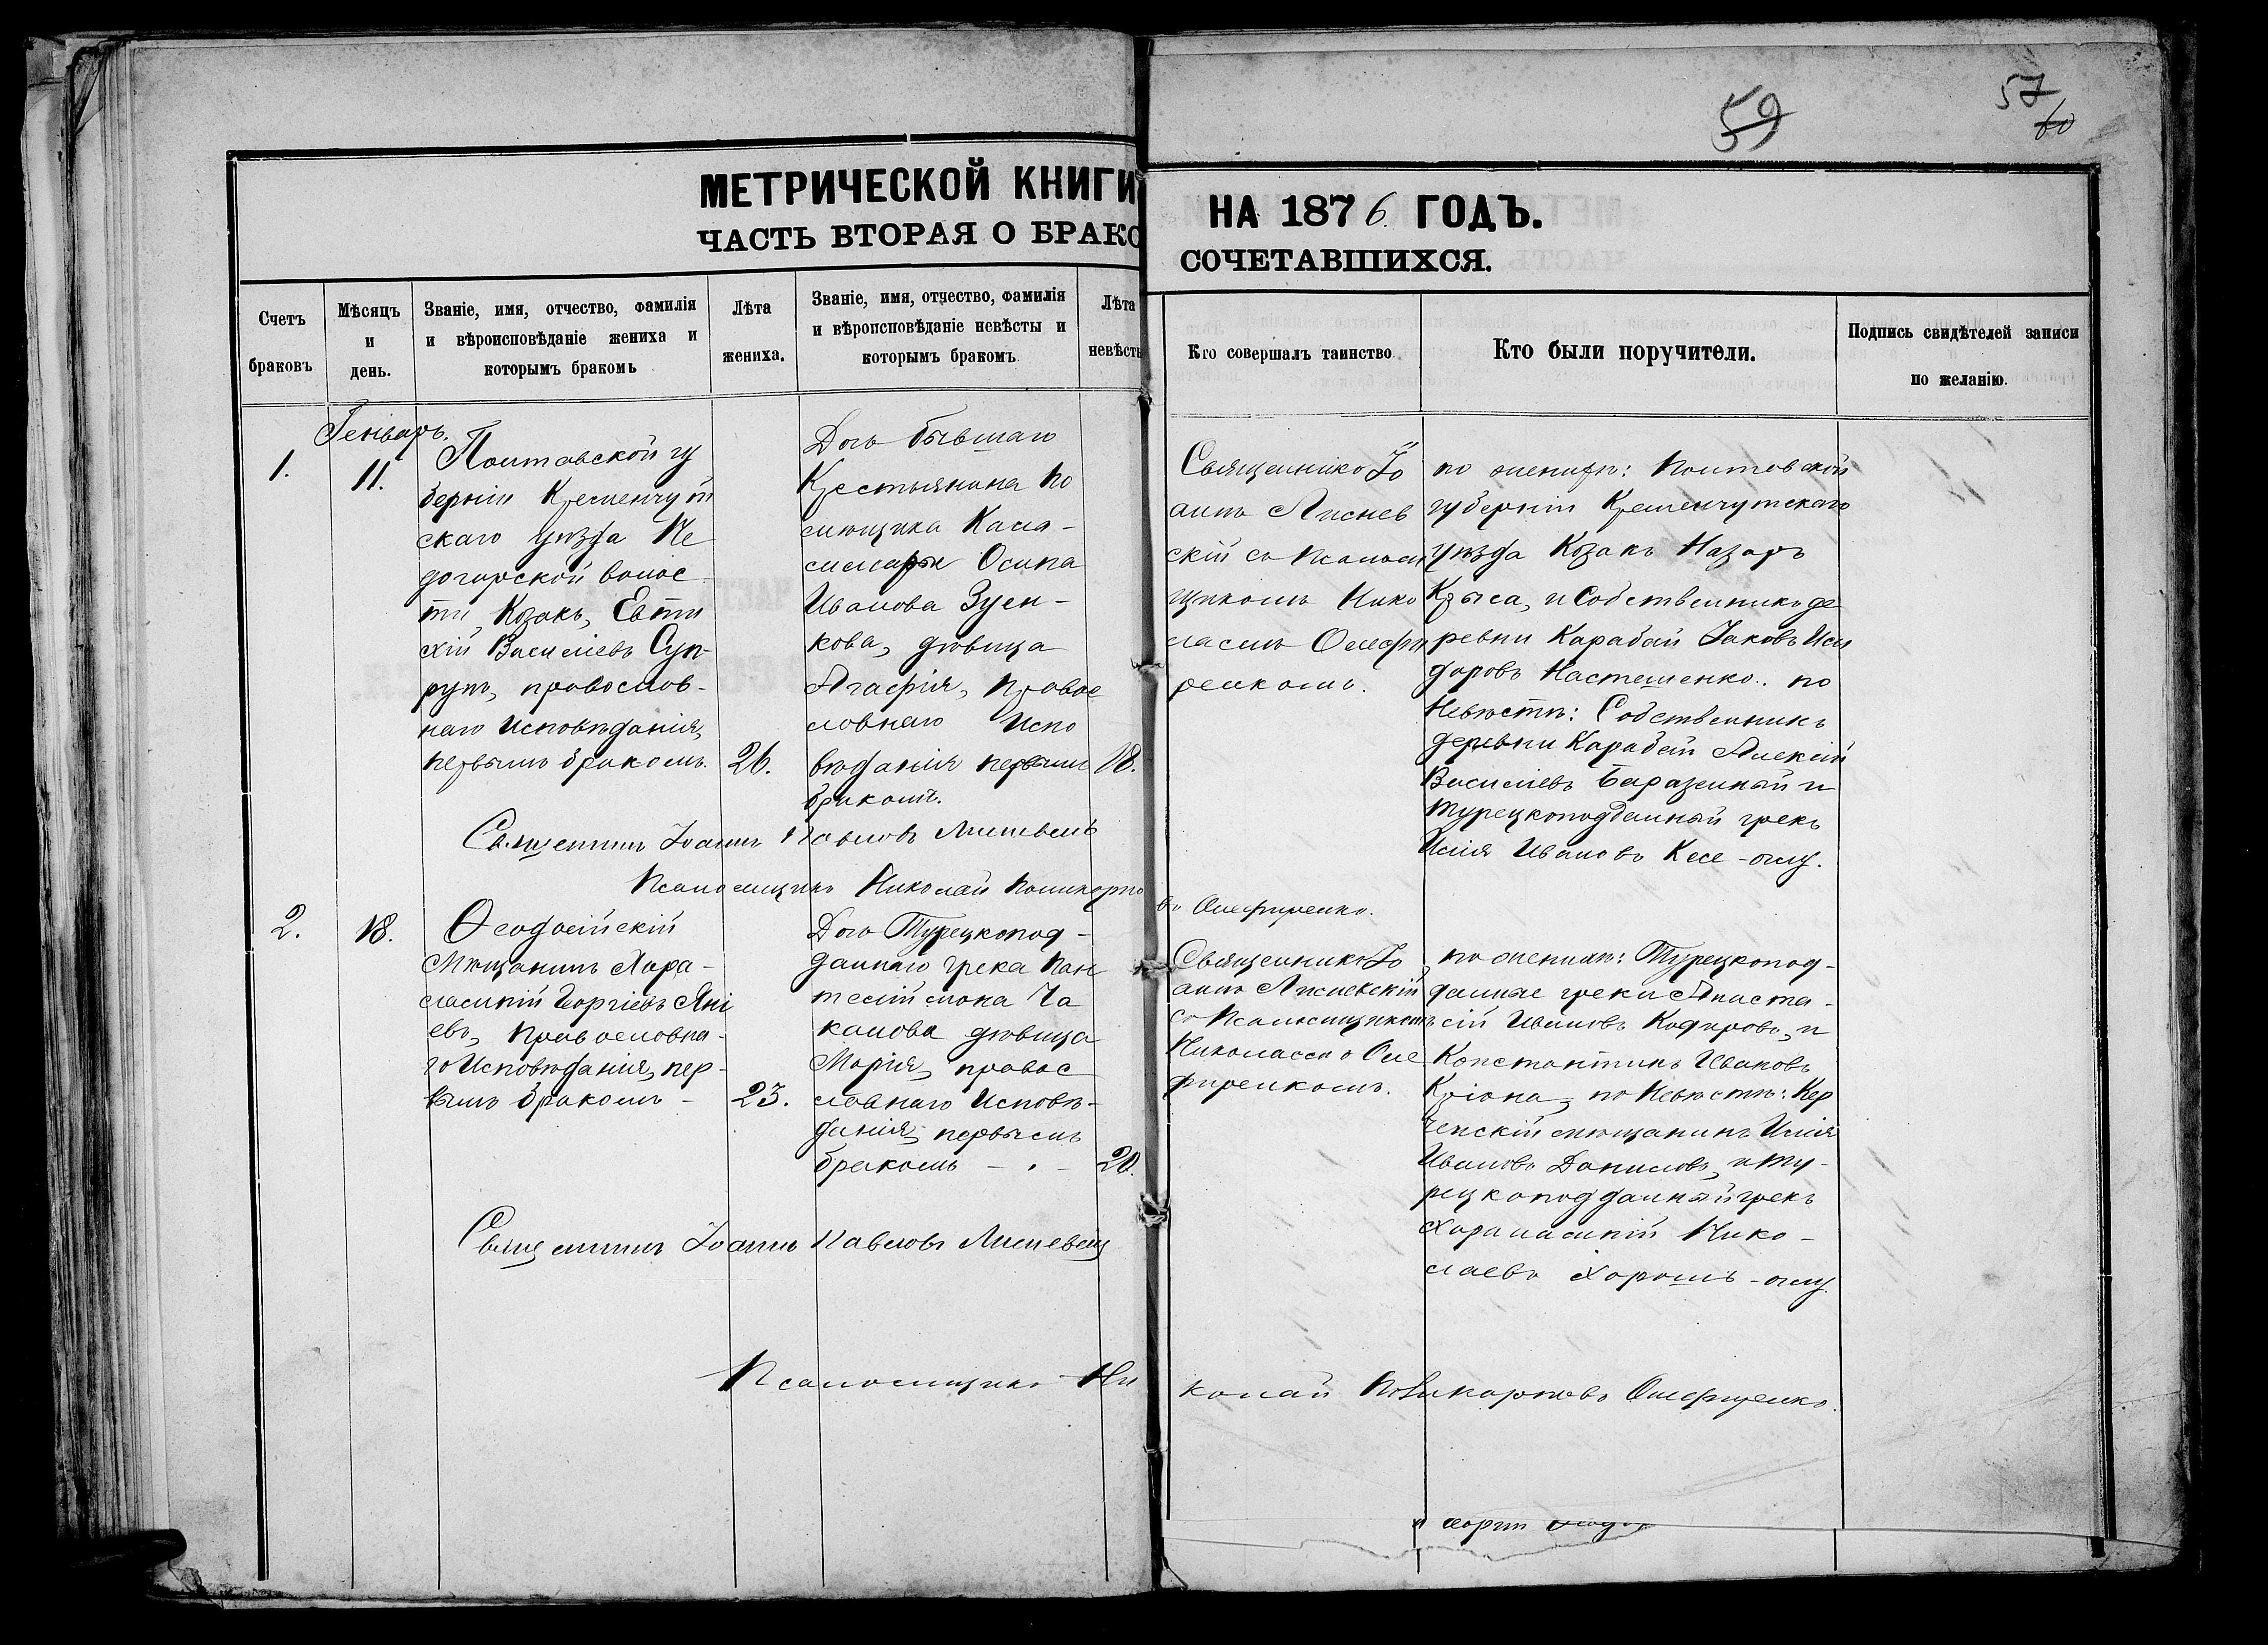 59
57
60
МЕТРИЧЕСКОЙ КНИГИ
ЧАСТЬ ВТОРАЯ О БРАКО
НА 1876 ГОДЪ.
СОЧЕТАВШИХСЯ.
Счетъ
браковъ
Мѣсяцъ
и
день.
Званіе, имя, отчество, фамилія
и вѣроисповѣданіе жениха и
которымъ бракомъ
Лѣта
жениха.
Званіе, имя, отчество, фамилія
и вѣроисповѣданіе невѣсты и
которымъ бракомъ
Лѣта
невѣсты
Кто совершалъ таинство.
Кто были поручители.
Подпись свидѣтелей записи
по желанію.
1.
Генварь.
11.
Полтавской гу
берніи Кременчуг
скаго уѣзда
догарской волос
ти Козакъ, Евти
хій Васильевъ Суп-
рунъ, православ-
наго исповѣданія,
первымъ бракомъ.
26.
Дочь бывшаго
Крестьянина по
мѣщика
Осипа
Иванова Зуен-
кова, дѣвица
Агафія, Право
славнаго Испо
вѣданія первымъ
бракомъ.
18.
Священникъ Іо
аннъ Лиснев
скій съ Псалом
щикомъ Нико
лаемъ Олефи
ренкомъ.
по женихѣ: Полтавской
губерніи Кременчугскаго
Уѣзда Козакъ Назаръ
Крыса, и Собственникъ де
ревни Карабай Іаковъ Иси
доровъ Настешенко. по
Невѣстѣ: Собственникъ
деревни Карабай Алексій
Васильевъ и
турецкоподданный грекъ
Илія Ивановъ Кесе-оглу.
Священникъ Іоаннъ Павловъ
Псаломщикъ Николай Поликарпо
въ Олефиренко.
2.
18.
Ѳеодосійскій
Мѣщанинъ Хара-
лампій Георгіевъ Яні
евъ, Православна-
го Исповѣданія, пер-
вымъ бракомъ -
23.
Дочь Турецкопод-
даннаго грека Пан
телеймона Ча
калова дѣвица
Марія, правос
лавнаго Исповѣ-
данія, первымъ
бракомъ - . -
20.
Священникъ Іо
аннъ Лисневскій
съ Псаломщикомъ
Николаемъ Оле
фиренкомъ.
по женихѣ: Турецкопод-
данные греки Анаста-
сій Ивановъ Кафировъ, и
Константинъ Ивановъ
Кріона, по Невѣстѣ: Кер
ченскій мѣщанинъ Илія
Ивановъ Даниловъ, и Ту-
рецкоподданный грекъ
Харалампій Нико-
лаевъ Харошъ-оглу.
Священникъ Іоаннъ Павловъ
Псаломщикъ Ни
колай Поликарповъ Олефиренко.